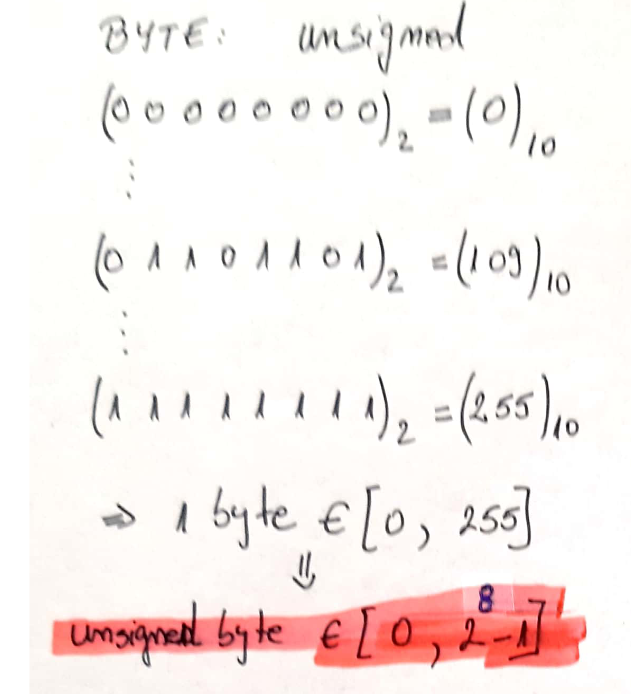 BYTE: unsigned
(0 0 0 0 0 0 0 0)₂ = (0)₁₀
⋮
(0 1 1 0 1 1 0 1)₂ = (109)₁₀
⋮
(1 1 1 1 1 1 1 1)₂ = (255)₁₀
⇒ 1 byte ∈ [0, 255]
⇓
unsigned byte ∈ [0, 2⁸-1]